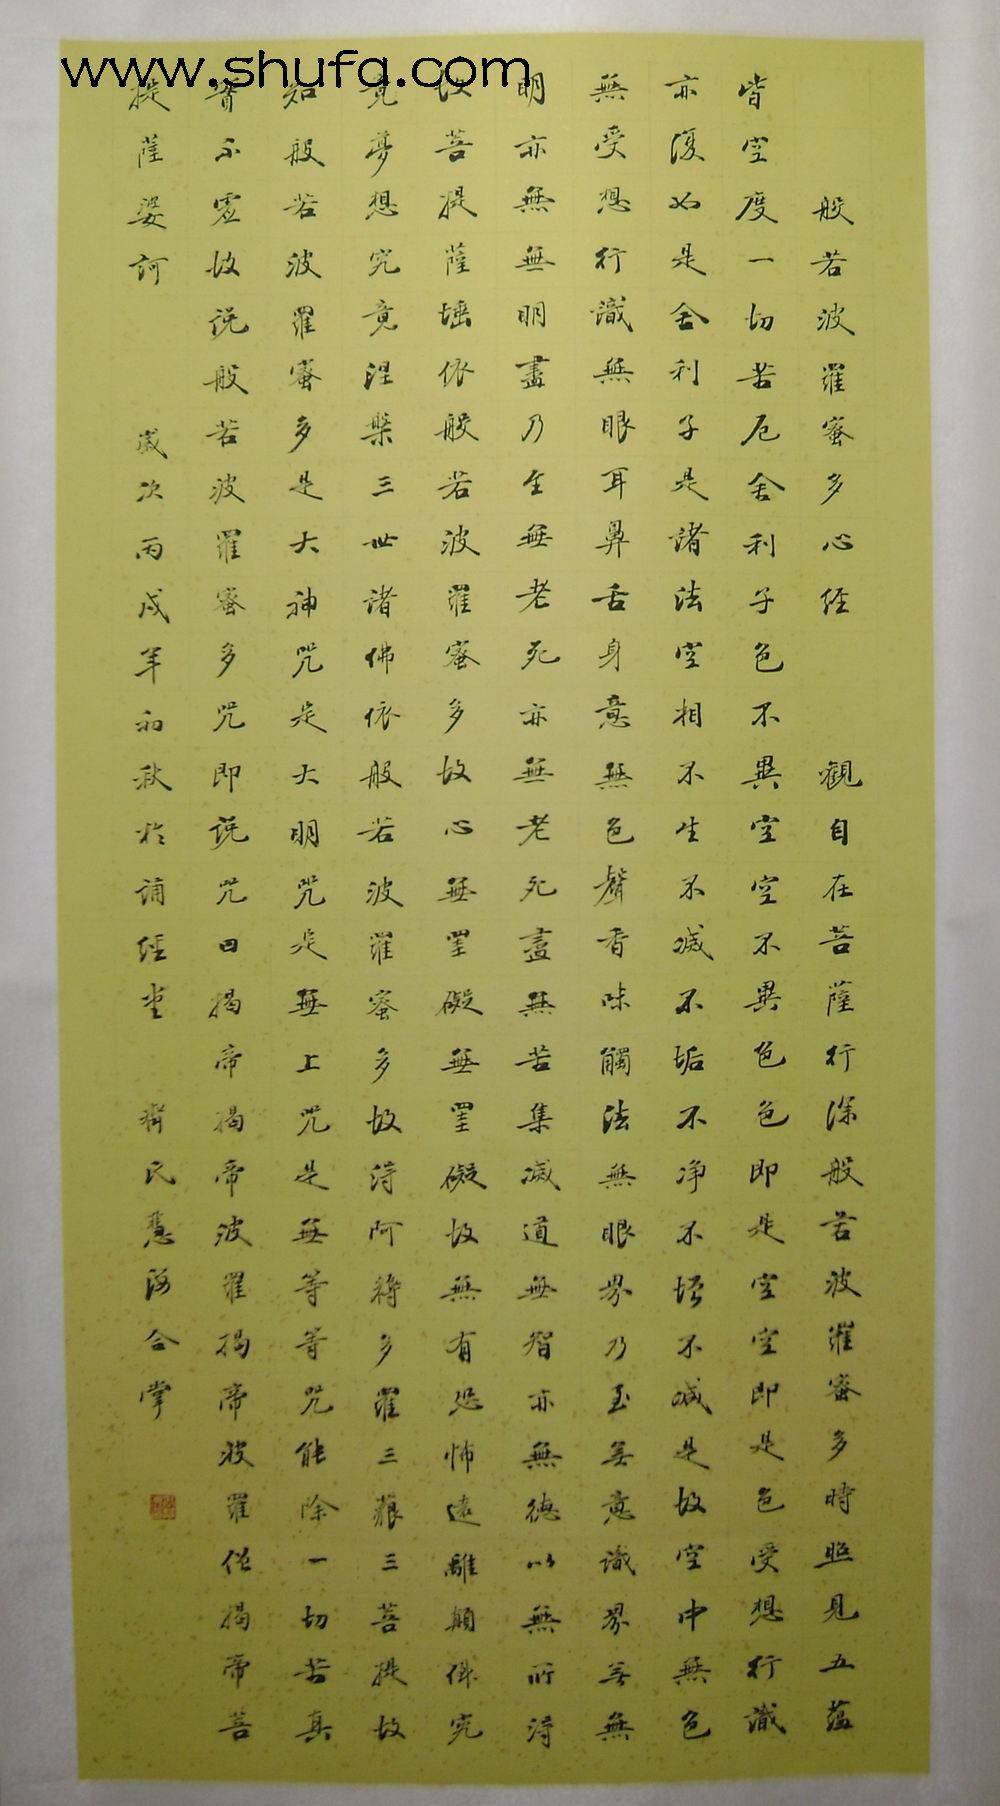 www.shufa.com
般若波羅蜜多心經 觀自在菩薩行深般若波羅蜜多時照見五蘊
皆空度一切苦厄舍利子色不異空空不異色色即是空空即是色受想行識
亦復如是舍利子是諸法空相不生不滅不垢不净不增不減是故空中無色
無受想行識無眼耳鼻舌身意無色聲香味觸法無眼界乃至無意識界無無
明亦無無明盡乃至無老死亦無老死盡無苦集滅道無智亦無德以無所得
故菩提薩埵依般若波羅蜜多故心無罣礙無罣礙故無有恐怖遠離顛倒究
竟夢想究竟涅槃三世諸佛依般若波羅蜜多故得阿耨多羅三藐三菩提故
知般若波羅蜜多是大神咒是大明咒是無上咒是無等等咒能除一切苦真
實不虛故說般若波羅蜜多咒即說咒曰揭帝揭帝波羅揭帝波羅僧揭帝菩
提薩婆訶 歲次丙戌年初秋於誦經堂 民慧海合掌